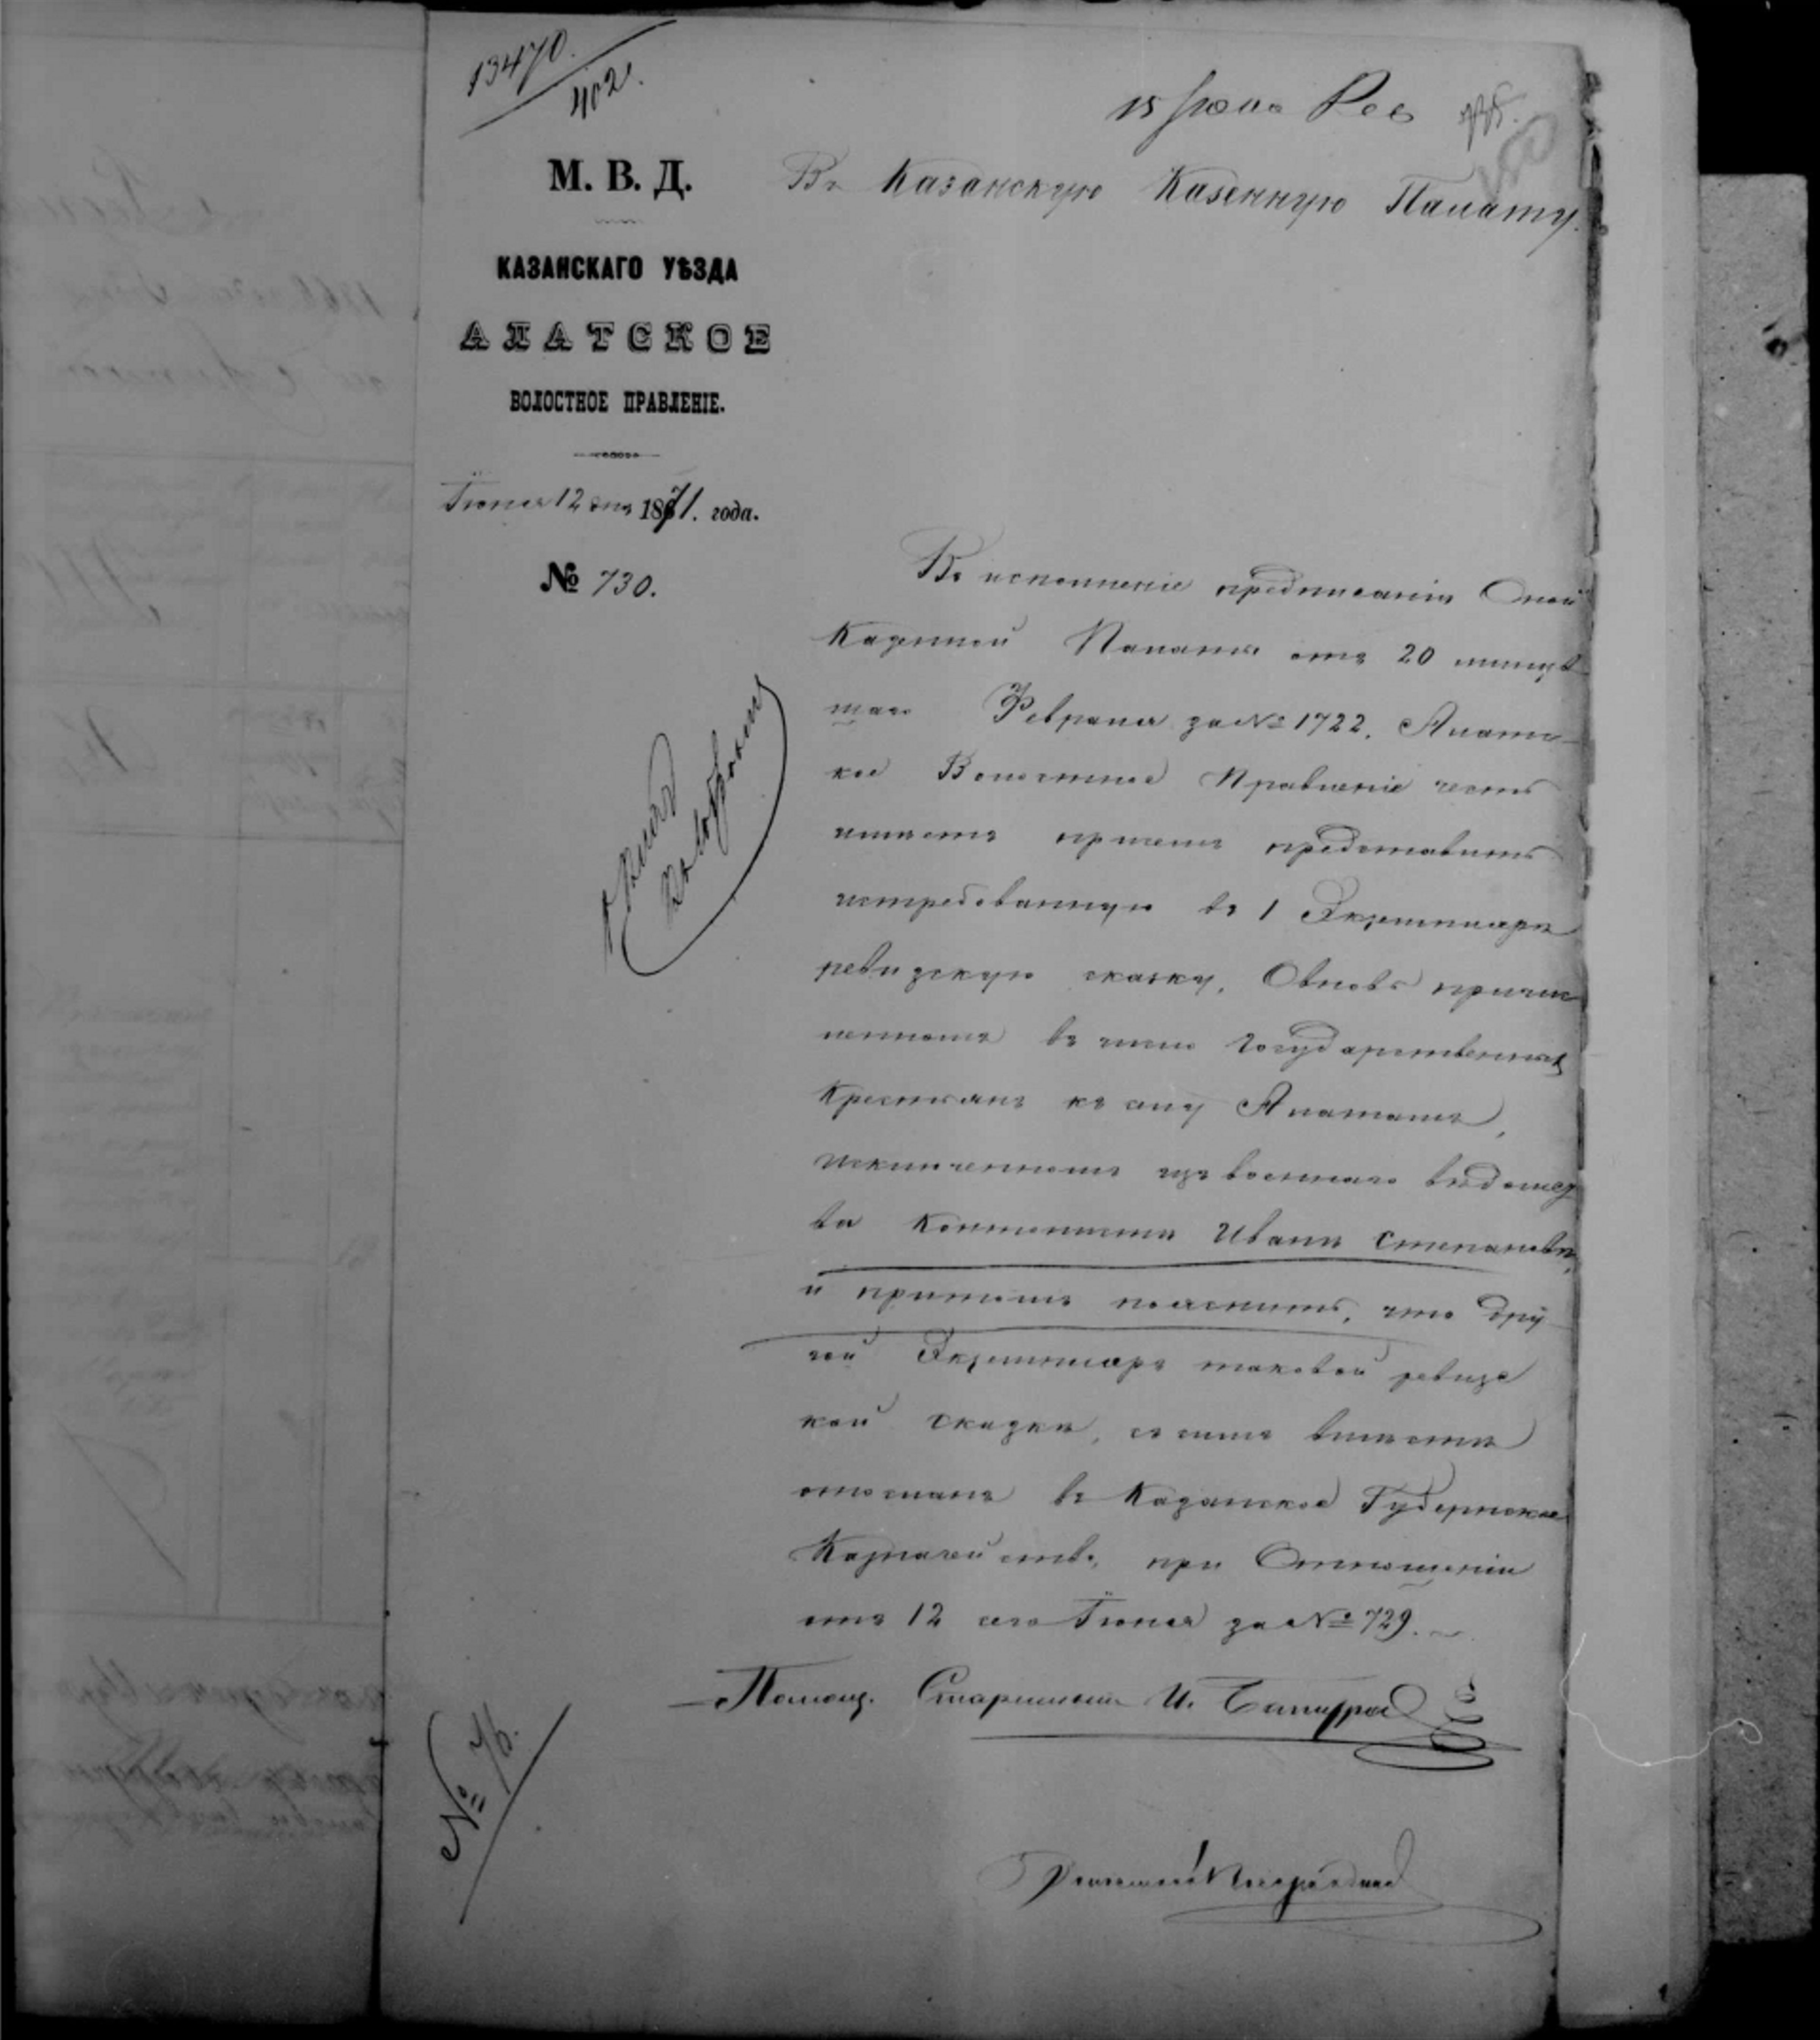 13470.
402.
15 Іюня Рев
М. В. Д.
Въ Казанскую Казенную Палату.
КАЗАНСКАГО УѢЗДА
АЛАТСКОЕ
ВОЛОСТНОЕ ПРАВЛЕНІЕ.
Іюня 12 дня 1871. года.
№ 730.
Во исполненіе предписанія Оной
Казенной Палаты отъ 20 минув
шаго Февраля за № 1722. Алатс-
кое Волостное Правленіе честь
имѣетъ при семъ представить
истребованную въ 1 Экземпляре
ревизскую сказку, О вновь причис
ленномъ въ число Государственныхъ
Крестьянъ къ селу Алатамъ,
исключенномъ изъ военнаго вѣдомст
ва Кантонистѣ Иванѣ Степановѣ,
и притомъ пояснить, что дру
гой Экземпляръ таковой ревизс
кой сказки, съ симъ вмѣстѣ
отосланъ въ Казанское Губернское
Казначейство, при Отношеніи
отъ 12 сего Іюня за № 729.
Помощ. Старшины И.
Волостной Писарь
№ 76.